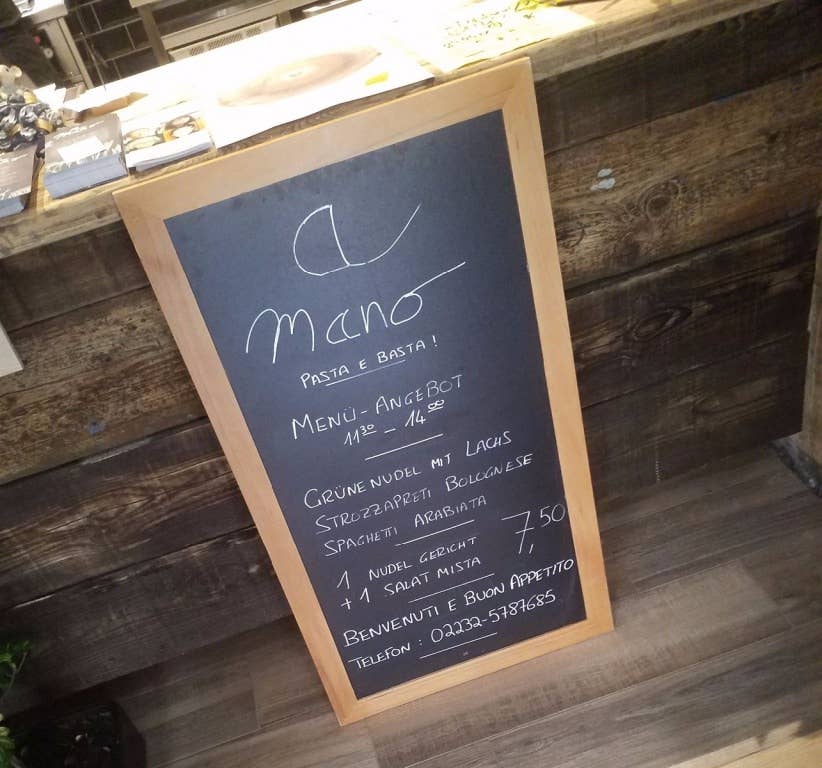 a
mano
PASTA E BASTA!
MENÜ-ANGEBOT
11³⁰ - 14⁰⁰
GRÜNE NUDEL MIT LACHS
STROZZAPRETI BOLOGNESE
SPAGHETTI ARABIATA
1 NUDEL GERICHT
+ 1 SALAT MISTA
7,50
BENVENUTI E BUON APPETITO
TELEFON: 02232-5787685